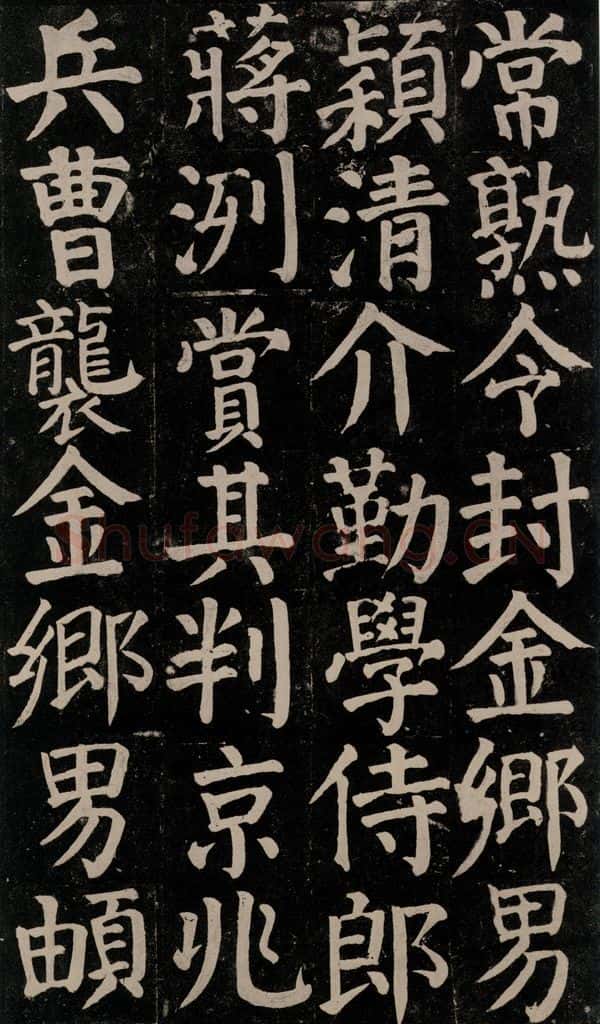 常熟令封金鄉男
穎清介勤學侍郎
蔣洌賞其判京兆
兵曹襲金鄉男頔
shufawang.CN